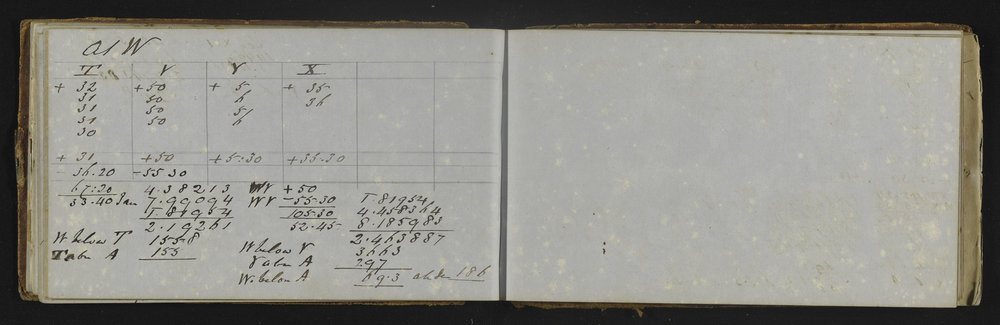 At W
T Y Y X
+ 32 + 50 + 5 + 35
31 50 6 36
31 50 5
31 50 6
30
+ 31 + 50 + 5:30 + 35.30
- 36.20 - 55 30
67:20 4.38213 WY + 50
53.40 7.99094 WY - 55.30 T.81954
T.81954 105.30 4.458364
2.19261 52.45 8.185983
W below T 1558 2.463887
T abv A 155 W below Y 3663
Y abv A 297
W. below A 69.3